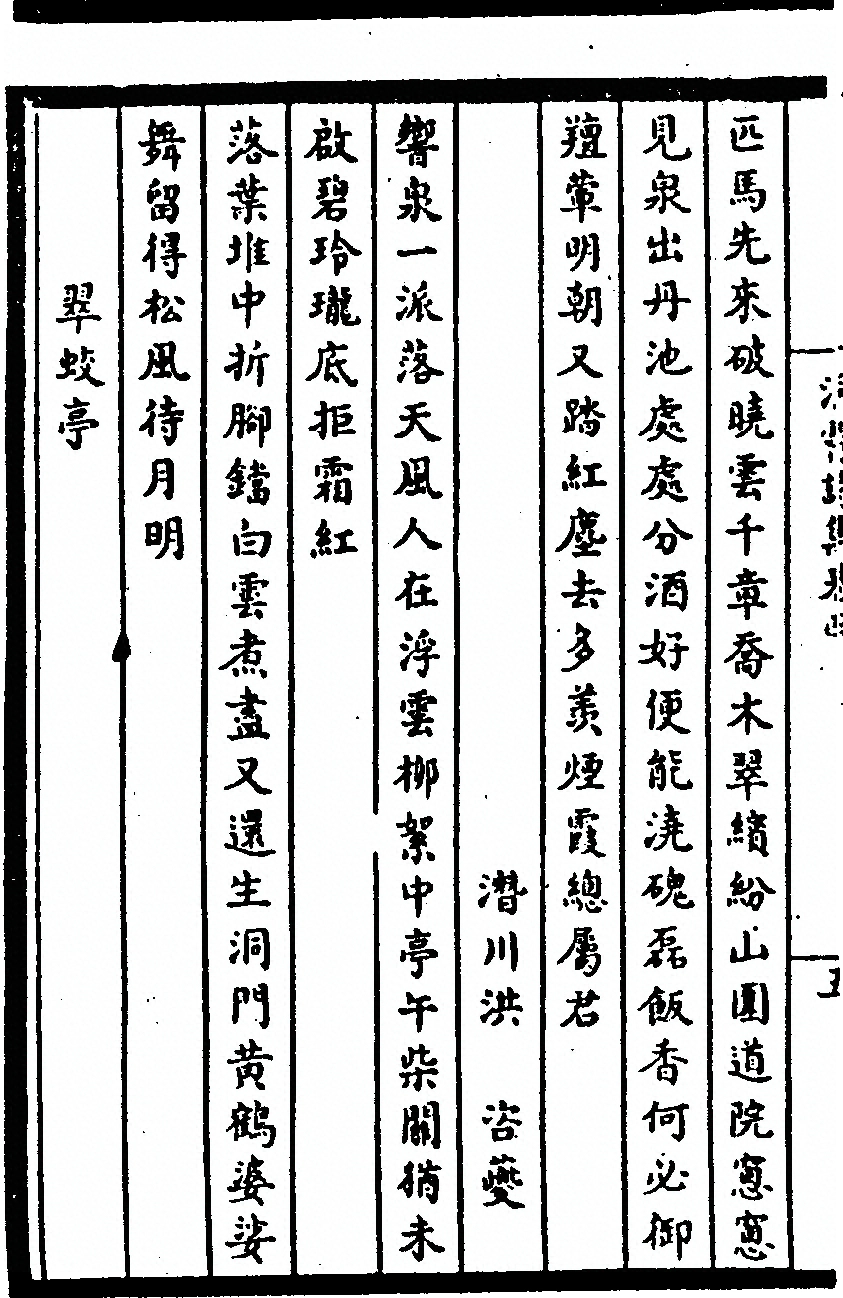 匹馬先來破曉雲千章喬木翠繽紛山圍道院窻窻
見泉出丹池處處分酒好便能澆磈磊飯香何必御
羶葷明朝又踏紅塵去多羨煙霞總屬君
潛川洪 咨夔
響泉一派落天風人在浮雲柳絮中亭午柴關猶未
啟碧玲瓏底拒霜紅
落葉堆中折腳鐺白雲煮盡又還生洞門黄鶴婆娑
舞留得松風待月明
翠蛟亭